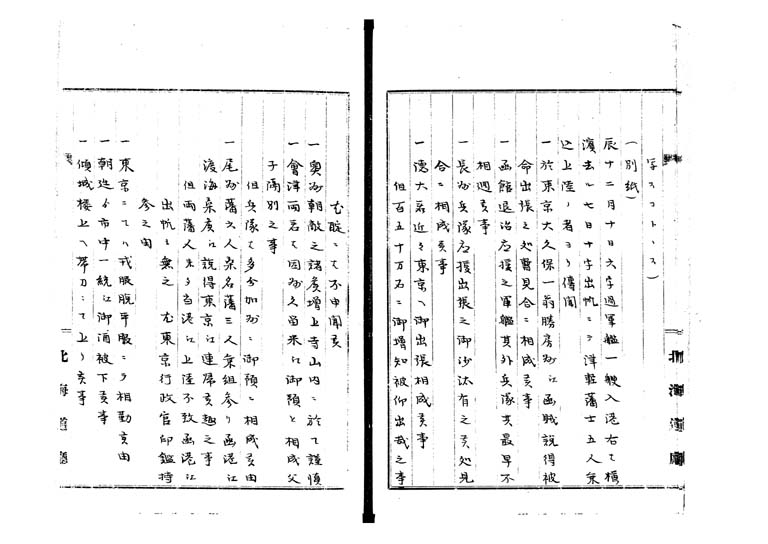 写スコトトス)
(別紙)
辰十二月十日六字過軍艦一艘入港右て横
濱去ル七日十字出帆ニテ津軽藩士五人乗
込上陸ノ者ヨリ傳聞
一於東京大久保一翁勝房州江函賊説得被
命出張之処暫見合ニ相成候事
一函館退治應援之軍艦其外兵隊共最早不
相廻候事
一長州兵隊應援出張之御沙汰有之候処見
合ニ相成候事
一徳大君近々東京ヘ御出張相成候事
但百五十万石ニ御増知被仰出哉之事
尤睦ニて不申聞候
一奥州朝敵之諸侯増上寺山内ニ於て謹慎
一會津両君て因州久留米江御預と相成父
子隔別之事
但兵隊て多分加州ニ御預ニ相成候由
一尾州藩六人桑名藩三人乗組参リ函港江
渡海桑侯江説得東京江連帰候趣之事
但両藩人未タ当港江上陸不致函港江
出帆ニ無之 尤東京行政官印鑑持
参之由
一東京ニてハ戎服脱平服ニテ相勤候由
一朝廷ゟ市中一統江御酒被下候事
一傾城楼上ヘ帯刀ニて上リ候事
北海道廳
北海道廳